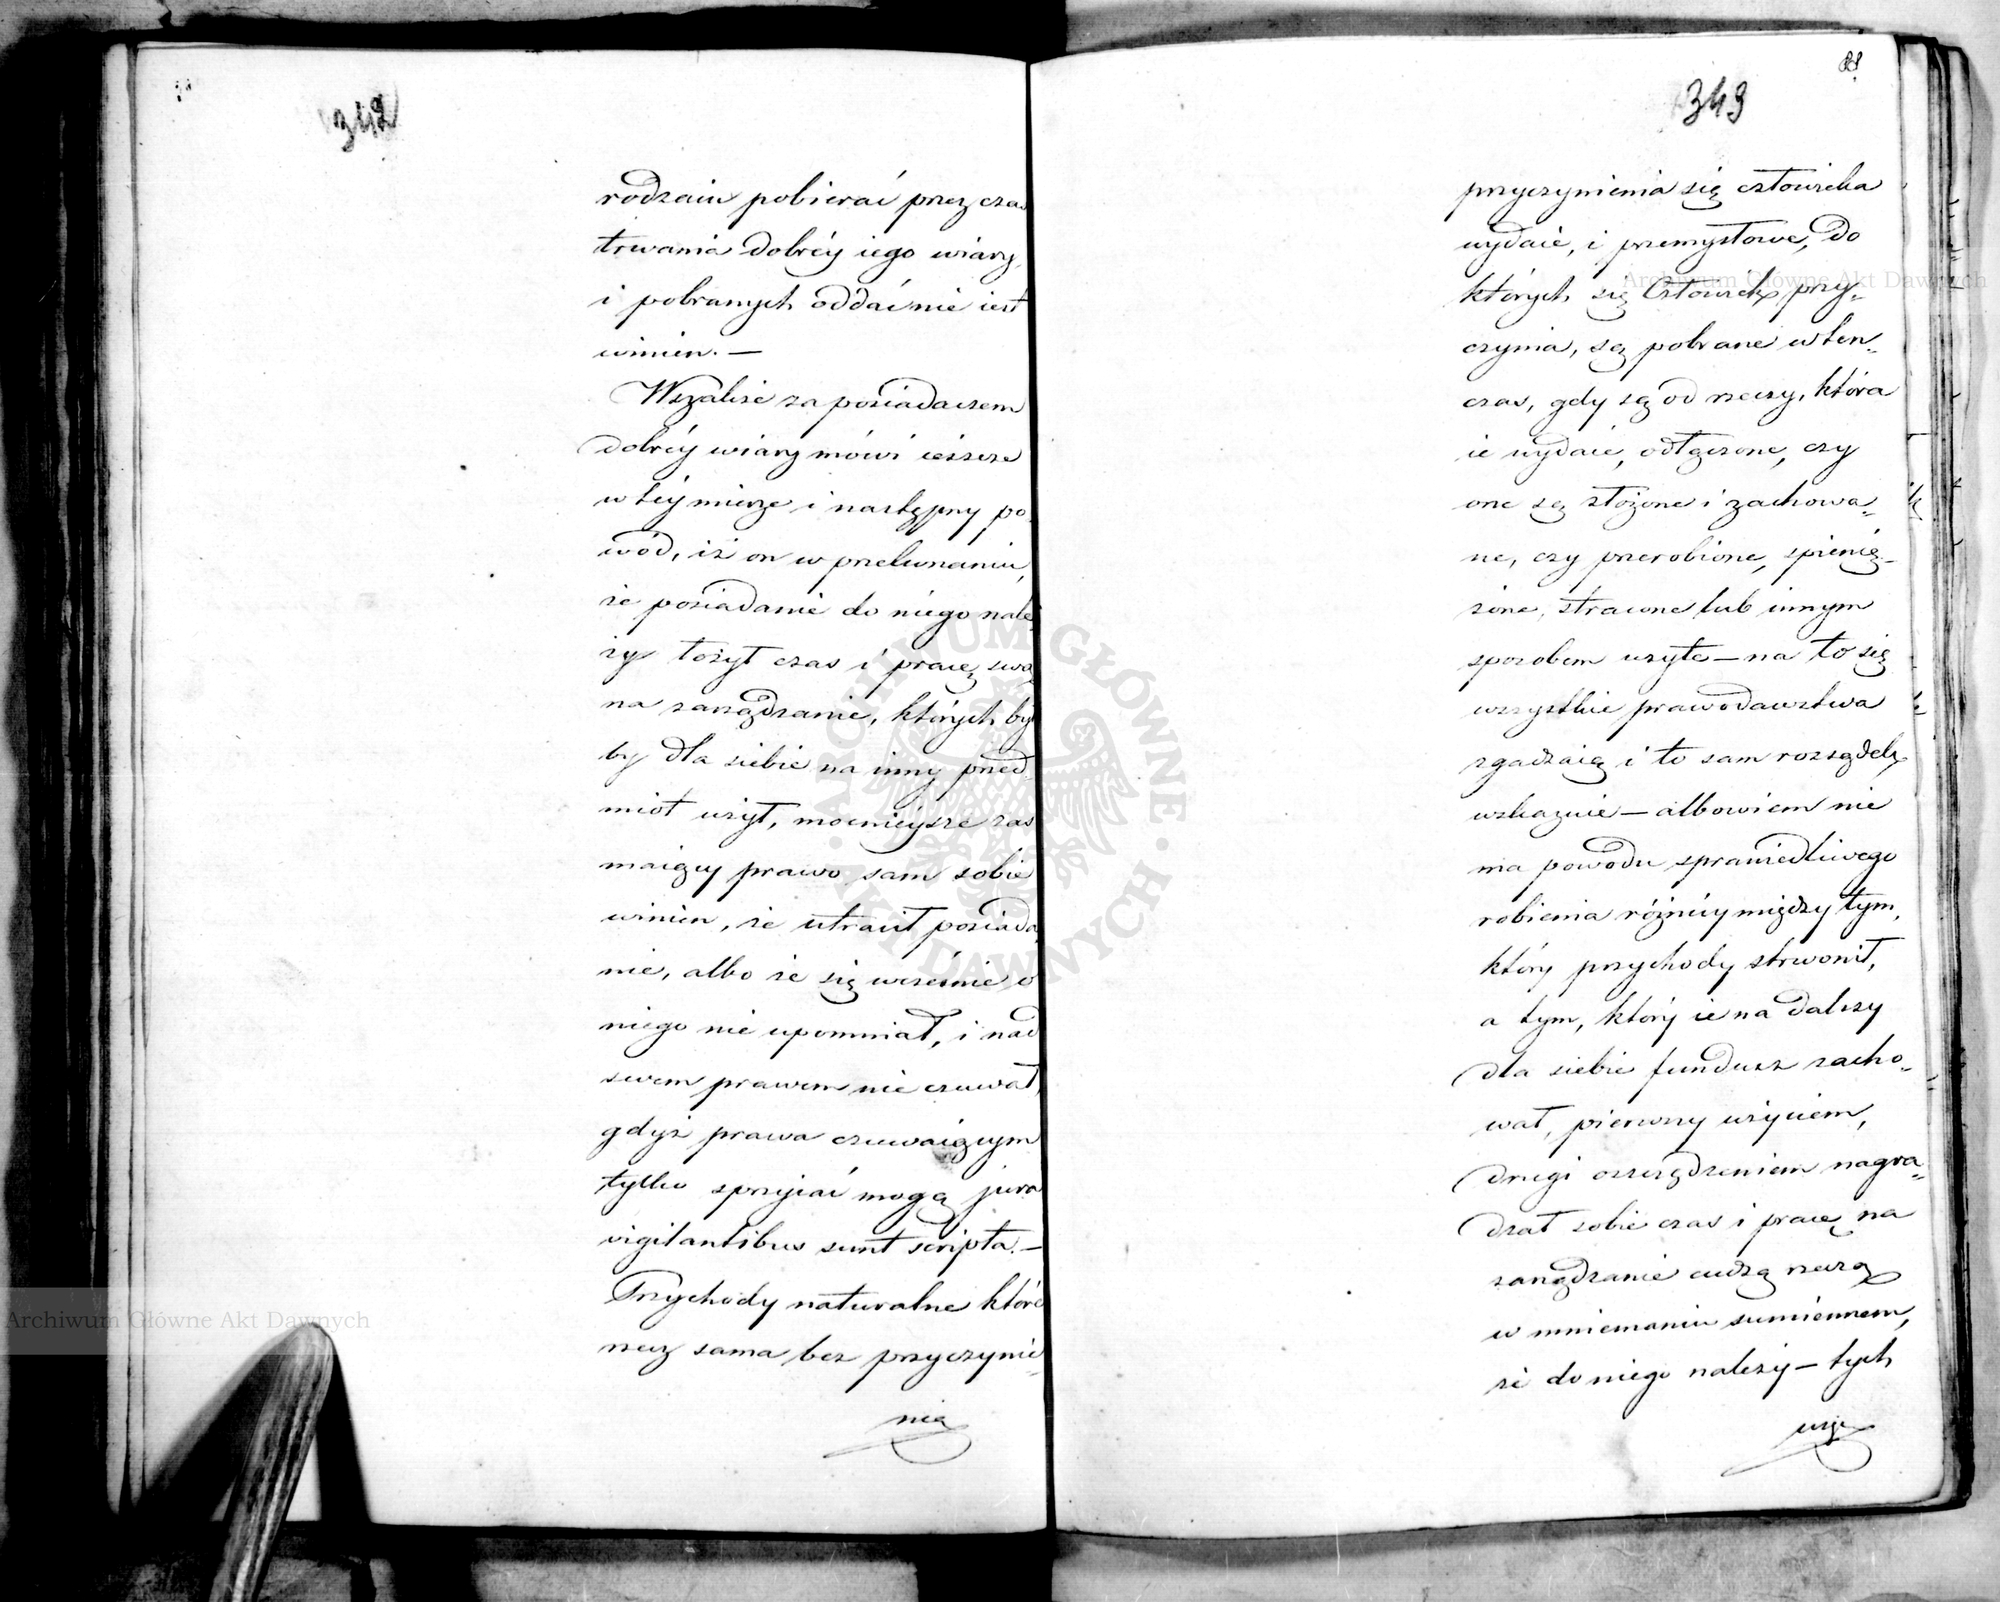 342
rodzaiu pobierać przez czas
trwania dobréy iego wiary,
i pobranych oddać nie iest
winien. —
Wszakże za posiadaczem
dobréy wiary mówi ieszcze
w téy mierze i następny po-
wód, iż on w przekonaniu,
że posiadanie do niego nale-
ży łożył czas i pracę swą
na zarządzanie, których by
by dla siebie na inny przed
miot użył, mocnieysze zas
maiący prawo sam sobie
winien, że utracił posiada
nie, albo że się wcześnie o
niego nie upomniał, i nad
swem prawem nie czuwał,
gdyż prawa czuwaiącym
tylko sprzyiać mogą jura
vigilantibus sunt scripta. —
Przychody naturalne które
rzecz sama bez przyczynie-
nia
88
343
przyczynienia się człowieka
wydaie, i przemysłowe, do
których się Człowiek przy-
czynia, są pobrane w ten-
czas, gdy są od rzeczy, która
ie wydaie, odłączone, czy
one są złożone i zachowa-
ne, czy przerobione, spienię-
żone, strawne lub innym
sposobem użyte — na to się
wszystkie prawodawstwa
zgadzaią i to sam rozsądek
wskazuie — albowiem nie
ma powodu sprawiedliwego
robienia różnicy między tym,
który przychody strwonił,
a tym, który ie na dalszy
dla siebie fundusz zacho-
wał, pierwszy użyciem,
drugi oszczędzeniem nagra-
dzał sobie czas i pracę na
zarządzanie cudzą rzeczą
w mniemaniu sumiennem,
że do niego należy — tych
uży
Archiwum Główne Akt Dawnych
Archiwum Główne Akt Dawnych
ARCHIWUM GŁÓWNE · AKT DAWNYCH ·